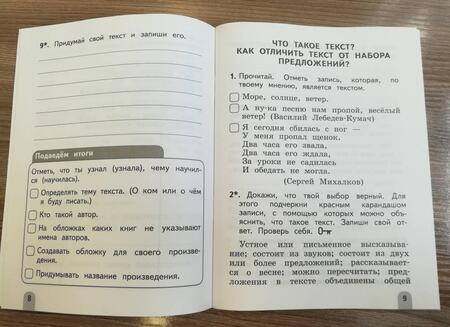 9*. Придумай свой текст и запиши его.
Подведём итоги
Отметь, что ты узнал (узнала), чему научил-
ся (научилась).
Определять тему текста. (О ком или о чём
я буду писать.)
Кто такой автор.
На обложках каких книг не указывают
имена авторов.
Создавать обложку для своего произве-
дения.
Придумывать название произведения.
8
ЧТО ТАКОЕ ТЕКСТ?
КАК ОТЛИЧИТЬ ТЕКСТ ОТ НАБОРА
ПРЕДЛОЖЕНИЙ?
1. Прочитай. Отметь запись, которая, по
твоему мнению, является текстом.
Море, солнце, ветер.
А ну-ка песню нам пропой, весёлый
ветер! (Василий Лебедев-Кумач)
Я сегодня сбилась с ног —
У меня пропал щенок.
Два часа его звала,
Два часа его ждала,
За уроки не садилась
И обедать не могла.
(Сергей Михалков)
2*. Докажи, что твой выбор верный. Для
этого подчеркни красным карандашом
записи, с помощью которых можно объ-
яснить, что такое текст. Запиши свой от-
вет. Проверь себя.
Устное или письменное высказыва-
ние; состоит из звуков; состоит из двух
или более предложений; рассказывает-
ся о весне; можно пересчитать; пред-
ложения в тексте объединены общей
9